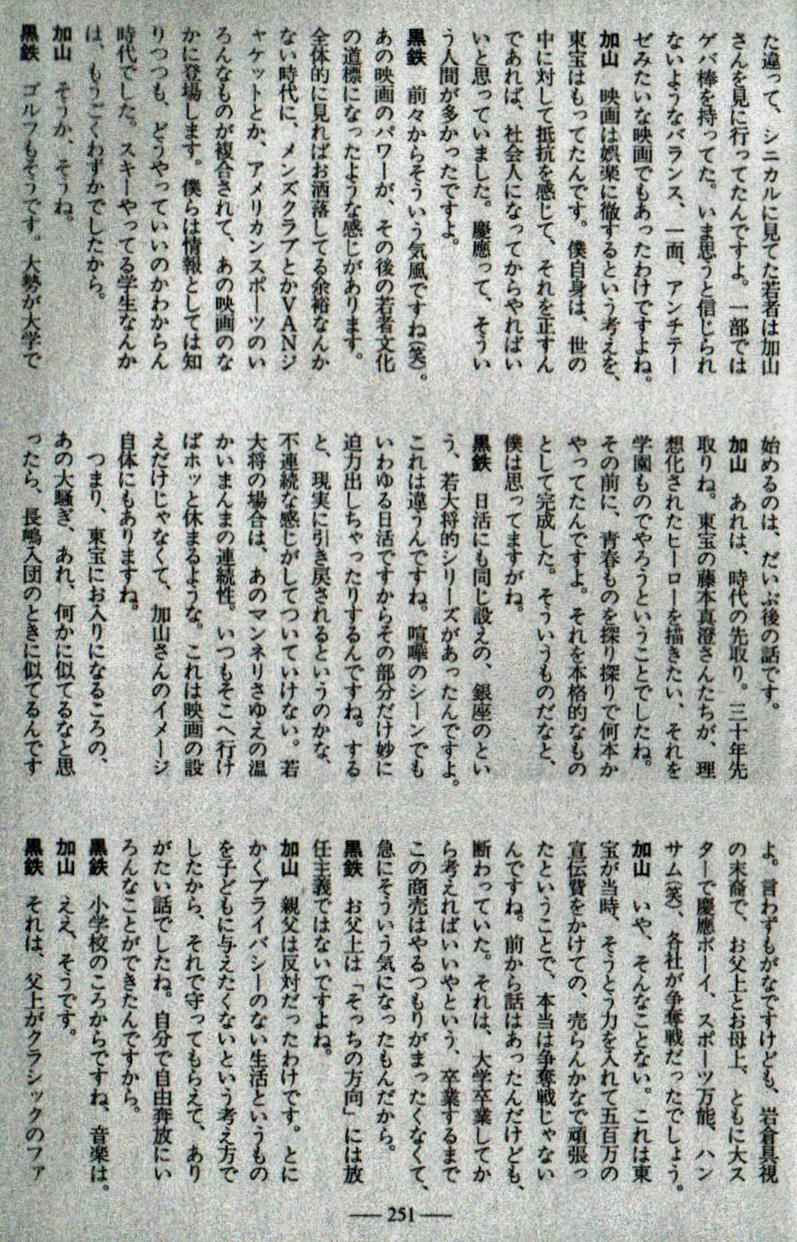 た違って、シニカルに見てた若者は加山
さんを見に行ってたんですよ。一部では
ゲバ棒を持ってた。いま思うと信じられ
ないようなバランス、一面、アンチテー
ゼみたいな映画でもあったわけですよね。
加山　映画は娯楽に徹するという考えを、
東宝はもってたんです。僕自身は、世の
中に対して抵抗を感じて、それを正すん
であれば、社会人になってからやればい
いと思っていました。慶應って、そうい
う人間が多かったですよ。
黒鉄　前々からそういう気風ですね(笑)。
あの映画のパワーが、その後の若者文化
の道標になったような感じがあります。
全体的に見ればお洒落してる余裕なんか
ない時代に、メンズクラブとかVANジ
ャケットとか、アメリカンスポーツのい
ろんなものが複合されて、あの映画のな
かに登場します。僕らは情報としては知
りつつも、どうやっていいのかわからん
時代でした。スキーやってる学生なんか
は、もうごくわずかでしたから。
加山　そうか、そうね。
黒鉄　ゴルフもそうです。大勢が大学で
始めるのは、だいぶ後の話です。
加山　あれは、時代の先取り。三十年先
取りね。東宝の藤本真澄さんたちが、理
想化されたヒーローを描きたい、それを
学園ものでやろうということでしたね。
その前に、青春ものを探り探りで何本か
やってたんですよ。それを本格的なもの
として完成した。そういうものだなと、
僕は思ってますがね。
黒鉄　日活にも同じ設えの、銀座のとい
う、若大将的シリーズがあったんですよ。
これは違うんですね。喧嘩のシーンでも
いわゆる日活ですからその部分だけ妙に
迫力出しちゃったりするんですね。する
と、現実に引き戻されるというのかな、
不連続な感じがしてついていけない。若
大将の場合は、あのマンネリさゆえの温
かいまんまの連続性。いつもそこへ行け
ばホッと休まるような。これは映画の設
えだけじゃなくて、加山さんのイメージ
自体にもありますね。
　つまり、東宝にお入りになるころの、
あの大騒ぎ、あれ、何かに似てるなと思
ったら、長嶋入団のときに似てるんです
よ。言わずもがなですけども、岩倉具視
の末裔で、お父上とお母上、ともに大ス
ターで慶應ボーイ、スポーツ万能、ハン
サム(笑)、各社が争奪戦だったでしょう。
加山　いや、そんなことない。これは東
宝が当時、そうとう力を入れて五百万の
宣伝費をかけての、売らんかなで頑張っ
たということで、本当は争奪戦じゃない
んですね。前から話はあったんだけども、
断わっていた。それは、大学卒業してか
ら考えればいいやという、卒業するまで
この商売はやるつもりがまったくなくて、
急にそういう気になったもんだから。
黒鉄　お父上は「そっちの方向」には放
任主義ではないですよね。
加山　親父は反対だったわけです。とに
かくプライバシーのない生活というもの
を子どもに与えたくないという考え方で
したから、それで守ってもらえて、あり
がたい話でしたね。自分で自由奔放にい
ろんなことができたんですから。
黒鉄　小学校のころからですね、音楽は。
加山　ええ、そうです。
黒鉄　それは、父上がクラシックのファ
251